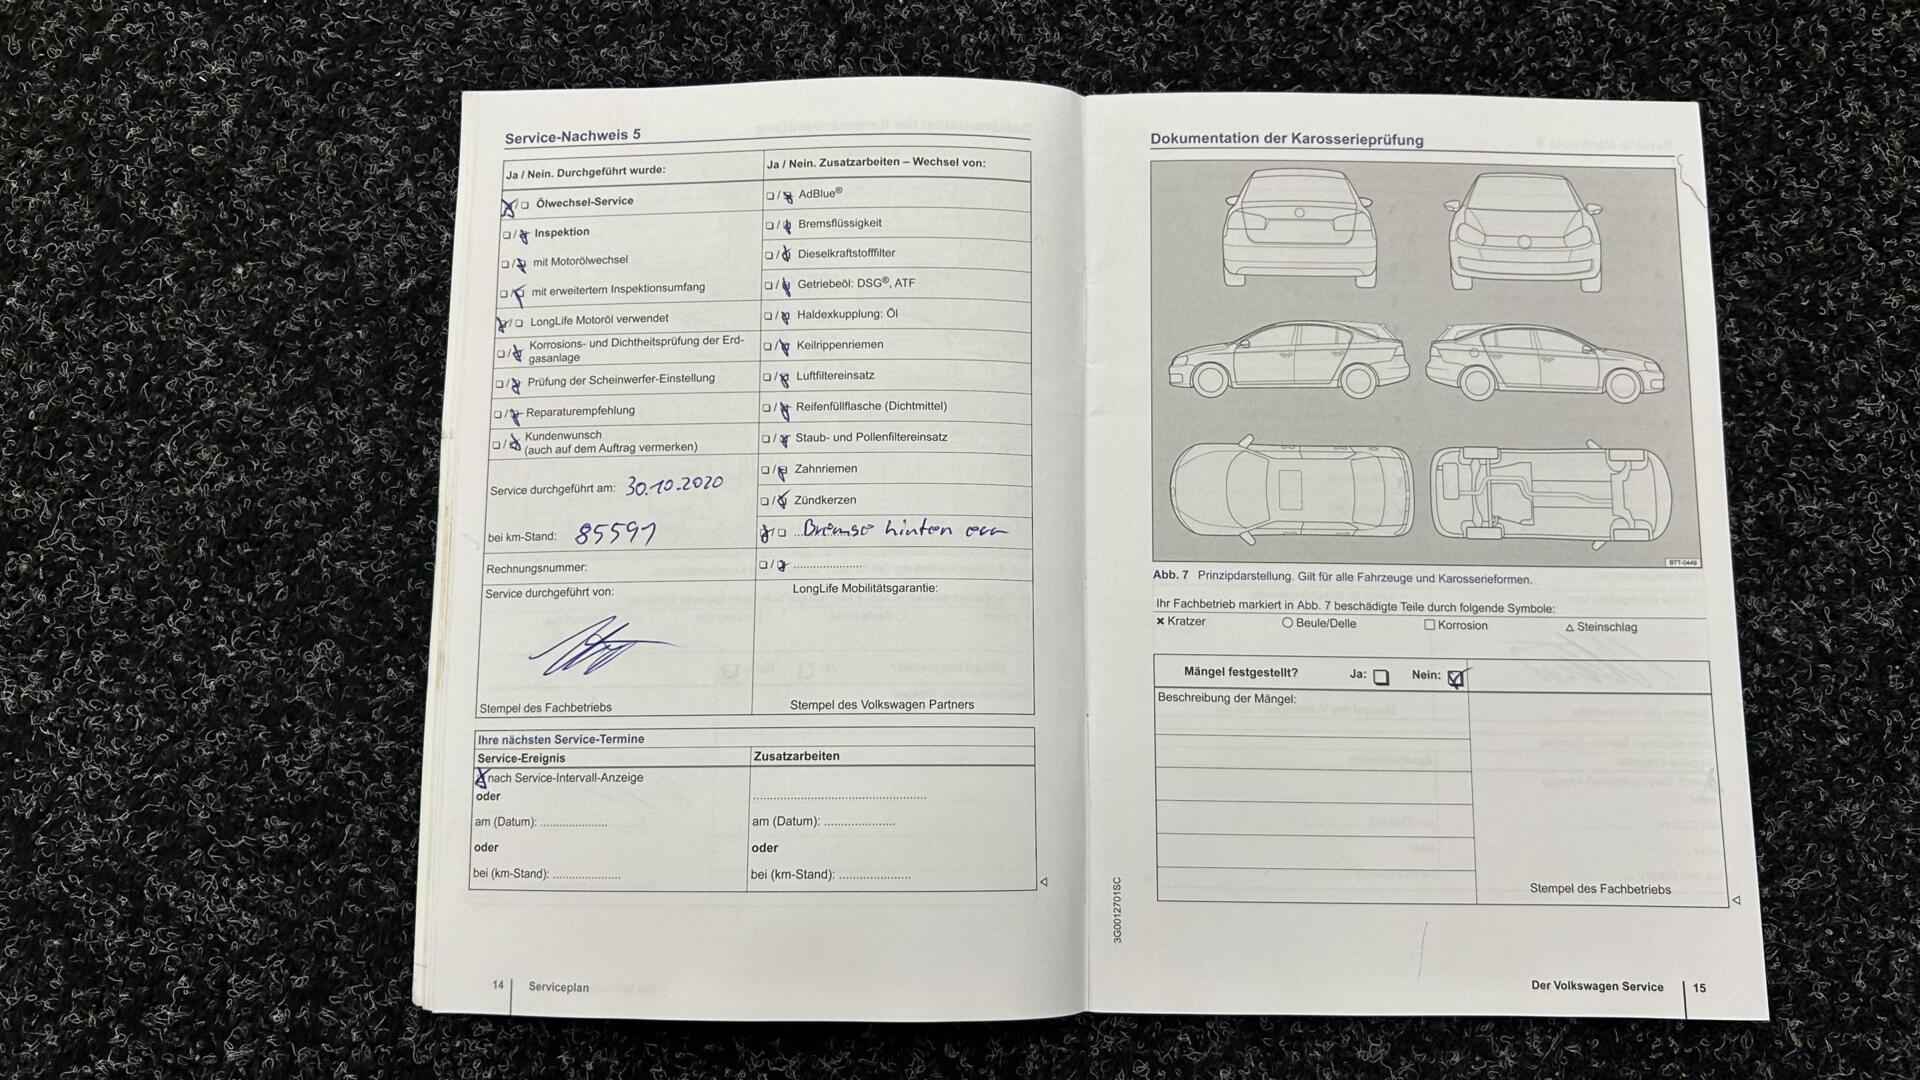 Service-Nachweis 5
Ja / Nein. Durchgeführt wurde:
Ölwechsel-Service
Inspektion
mit Motorölwechsel
mit erweitertem Inspektionsumfang
LongLife Motoröl verwendet
Korrosions- und Dichtheitsprüfung der Erd-
gasanlage
Prüfung der Scheinwerfer-Einstellung
Reparaturempfehlung
Kundenwunsch
(auch auf dem Auftrag vermerken)
Service durchgeführt am: 30.10.2020
bei km-Stand: 85591
Rechnungsnummer:
Service durchgeführt von:
Stempel des Fachbetriebs
Ja / Nein. Zusatzarbeiten – Wechsel von:
AdBlue®
Bremsflüssigkeit
Dieselkraftstofffilter
Getriebeöl: DSG®, ATF
Haldexkupplung: Öl
Keilrippenriemen
Luftfiltereinsatz
Reifenfüllflasche (Dichtmittel)
Staub- und Pollenfiltereinsatz
Zahnriemen
Zündkerzen
Bremse hinten
LongLife Mobilitätsgarantie:
Stempel des Volkswagen Partners
Ihre nächsten Service-Termine
Service-Ereignis
nach Service-Intervall-Anzeige
oder
am (Datum): ....................
oder
bei (km-Stand): ....................
Zusatzarbeiten
am (Datum): ....................
oder
bei (km-Stand): ....................
14 Serviceplan
Dokumentation der Karosserieprüfung
B7T-0449
Abb. 7 Prinzipdarstellung. Gilt für alle Fahrzeuge und Karosserieformen.
Ihr Fachbetrieb markiert in Abb. 7 beschädigte Teile durch folgende Symbole:
× Kratzer ○ Beule/Delle □ Korrosion △ Steinschlag
Mängel festgestellt? Ja: Nein:
Beschreibung der Mängel:
Stempel des Fachbetriebs
3G0012701SC
Der Volkswagen Service 15